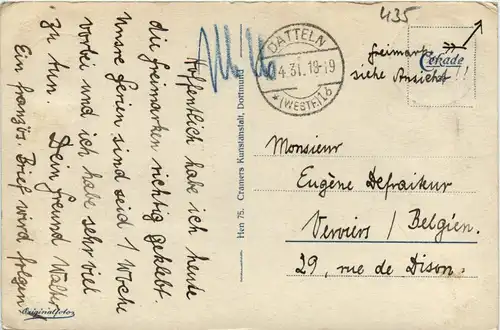 Hoffentlich habe ich heute
die Freimarken richtig geklebt.
Unsre Ferien sind seid 1 Woche
vorbei und ich habe sehr viel
zu tun. Dein Freund Walter
Ein französ. Brief wird folgen
Originalfoto
Hen 75. Cramers Kunstanstalt, Dortmund
435
DATTELN
4.31.18-19
*(WESTF.)1b
Freimarke
siehe Ansicht!!
Cekade
Monsieur
Eugène Defraiteur
Verviers / Belgien.
29, rue de Dison.